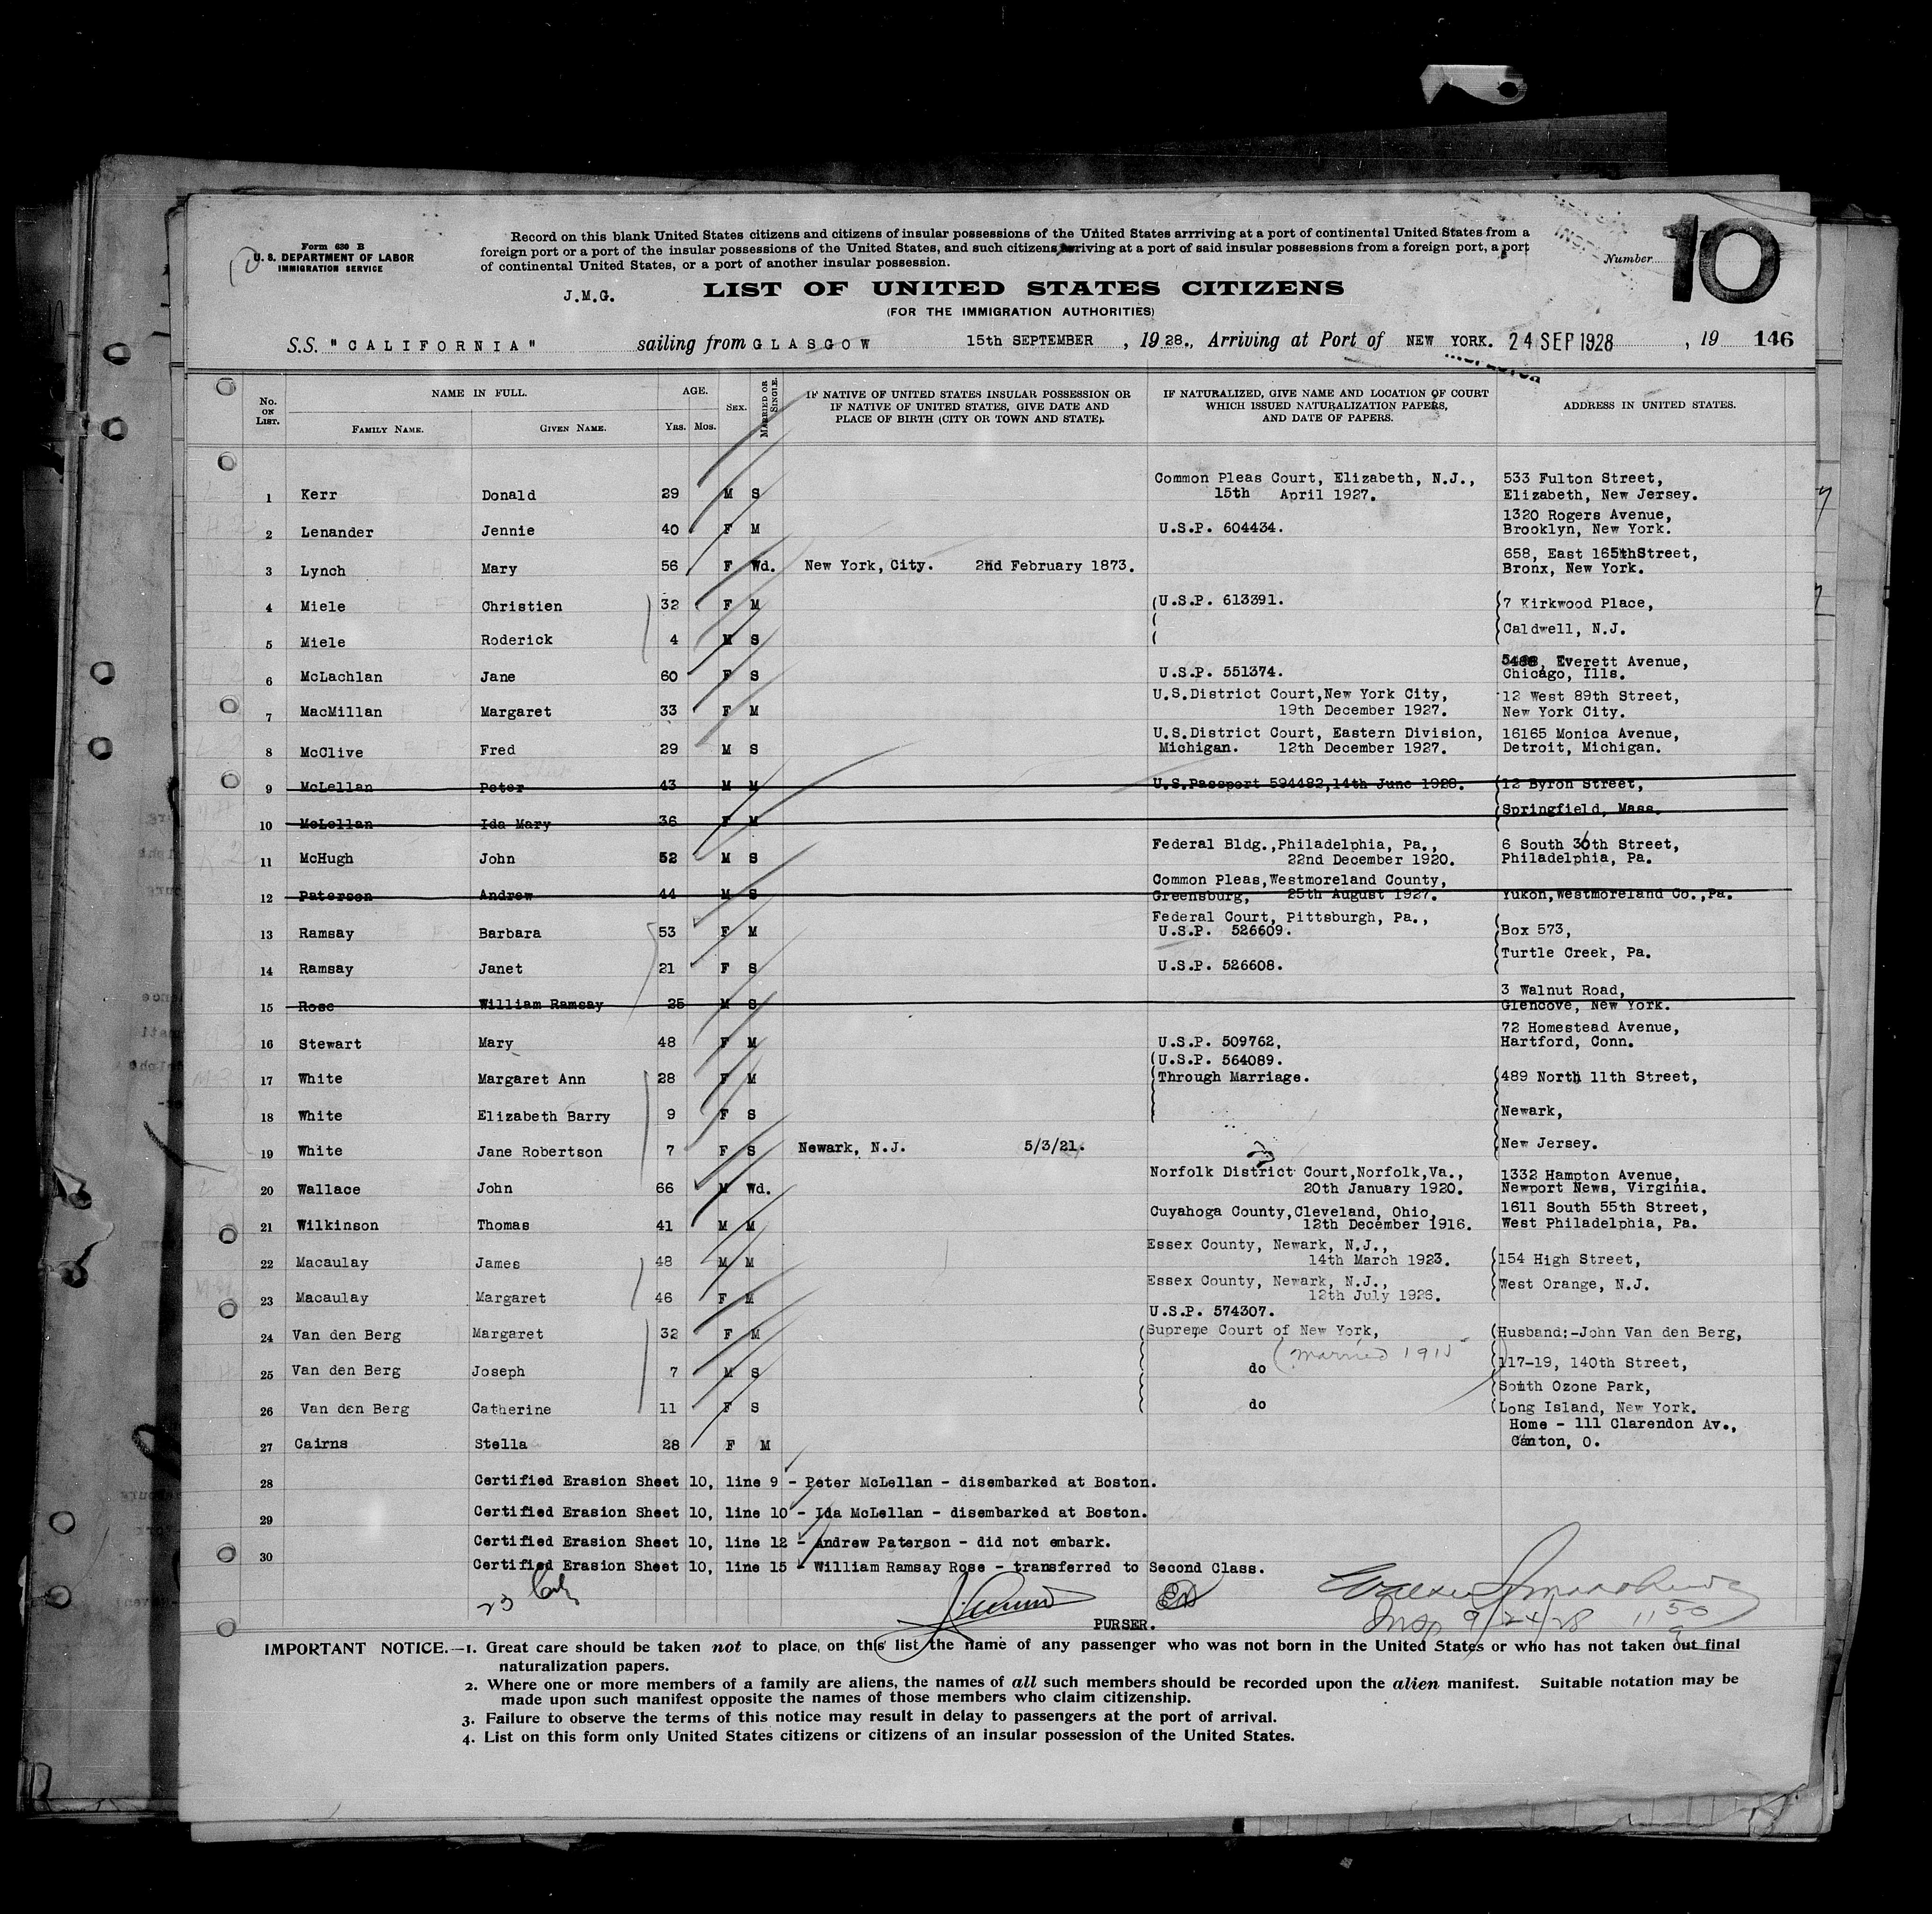 Form 630 B
U. S. DEPARTMENT OF LABOR
IMMIGRATION SERVICE
Record on this blank United States citizens and citizens of insular possessions of the United States arrriving at a port of continental United States from a
foreign port or a port of the insular possessions of the United States, and such citizens arriving at a port of said insular possessions from a foreign port, a port
of continental United States, or a port of another insular possession.
Number 10
J.M.G.
LIST OF UNITED STATES CITIZENS
(FOR THE IMMIGRATION AUTHORITIES)
S.S. "CALIFORNIA" sailing from GLASGOW 15th SEPTEMBER, 1928., Arriving at Port of NEW YORK. 24 SEP 1928, 19 146
No. ON LIST. NAME IN FULL. FAMILY NAME. GIVEN NAME. AGE. YRS. MOS. SEX. MARRIED OR SINGLE. IF NATIVE OF UNITED STATES INSULAR POSSESSION OR IF NATIVE OF UNITED STATES, GIVE DATE AND PLACE OF BIRTH (CITY OR TOWN AND STATE). IF NATURALIZED, GIVE NAME AND LOCATION OF COURT WHICH ISSUED NATURALIZATION PAPERS, AND DATE OF PAPERS. ADDRESS IN UNITED STATES.
1 Kerr Donald 29 M S Common Pleas Court, Elizabeth, N.J., 15th April 1927. 533 Fulton Street, Elizabeth, New Jersey.
2 Lenander Jennie 40 F M U.S.P. 604434. 1320 Rogers Avenue, Brooklyn, New York.
3 Lynch Mary 56 F Wd. New York, City. 2nd February 1873. 658, East 165thStreet, Bronx, New York.
4 Miele Christien 32 F M (U.S.P. 613391. 7 Kirkwood Place,
5 Miele Roderick 4 M S Caldwell, N.J.
6 McLachlan Jane 60 F S U.S.P. 551374. Everett Avenue, Chicago, Ills.
7 MacMillan Margaret 33 F M U.S.District Court,New York City, 19th December 1927. 12 West 89th Street, New York City.
8 McClive Fred 29 M S U.S.District Court, Eastern Division, Michigan. 12th December 1927. 16165 Monica Avenue, Detroit, Michigan.
9 McLellan Peter 43 M M U.S.Passport 594482,14th June 1928. 12 Byron Street,
10 McLellan Ida Mary 36 F M Springfield, Mass.
11 McHugh John 52 M S Federal Bldg.,Philadelphia, Pa., 22nd December 1920. 6 South 36th Street, Philadelphia, Pa.
12 Paterson Andrew 44 M S Common Pleas,Westmoreland County, Greensburg, 25th August 1927. Yukon,Westmoreland Co.,Pa.
13 Ramsay Barbara 53 F M Federal Court, Pittsburgh, Pa., U.S.P. 526609. Box 573,
14 Ramsay Janet 21 F S U.S.P. 526608. Turtle Creek, Pa.
15 Rose William Ramsay 25 M S 3 Walnut Road, Glencove, New York.
16 Stewart Mary 48 F M U.S.P. 509762, 72 Homestead Avenue, Hartford, Conn.
17 White Margaret Ann 28 F M (U.S.P. 564089. Through Marriage. 489 North 11th Street,
18 White Elizabeth Barry 9 F S Newark,
19 White Jane Robertson 7 F S Newark, N.J. 5/3/21. New Jersey.
20 Wallace John 66 M Wd. Norfolk District Court,Norfolk,Va., 20th January 1920. 1332 Hampton Avenue, Newport News, Virginia.
21 Wilkinson Thomas 41 M M Cuyahoga County,Cleveland, Ohio, 12th December 1916. 1611 South 55th Street, West Philadelphia, Pa.
22 Macaulay James 48 M M Essex County, Newark, N.J., 14th March 1923. 154 High Street,
23 Macaulay Margaret 46 F M Essex County, Newark, N.J., 12th July 1926. West Orange, N.J.
24 Van den Berg Margaret 32 F M U.S.P. 574307. Supreme Court of New York, Husband:-John Van den Berg,
25 Van den Berg Joseph 7 M S do (married 1915 117-19, 140th Street,
26 Van den Berg Catherine 11 F S do South Ozone Park, Long Island, New York.
27 Cairns Stella 28 F M Home - 111 Clarendon Av., Canton, O.
28 Certified Erasion Sheet 10, line 9 - Peter McLellan - disembarked at Boston.
29 Certified Erasion Sheet 10, line 10 - Ida McLellan - disembarked at Boston.
30 Certified Erasion Sheet 10, line 12 - Andrew Paterson - did not embark.
Certified Erasion Sheet 10, line 15 - William Ramsay Rose - transferred to Second Class.
23
PURSER.
Insp 9/24/28 11 50
IMPORTANT NOTICE.—1. Great care should be taken not to place on this list the name of any passenger who was not born in the United States or who has not taken out final
naturalization papers.
2. Where one or more members of a family are aliens, the names of all such members should be recorded upon the alien manifest. Suitable notation may be
made upon such manifest opposite the names of those members who claim citizenship.
3. Failure to observe the terms of this notice may result in delay to passengers at the port of arrival.
4. List on this form only United States citizens or citizens of an insular possession of the United States.